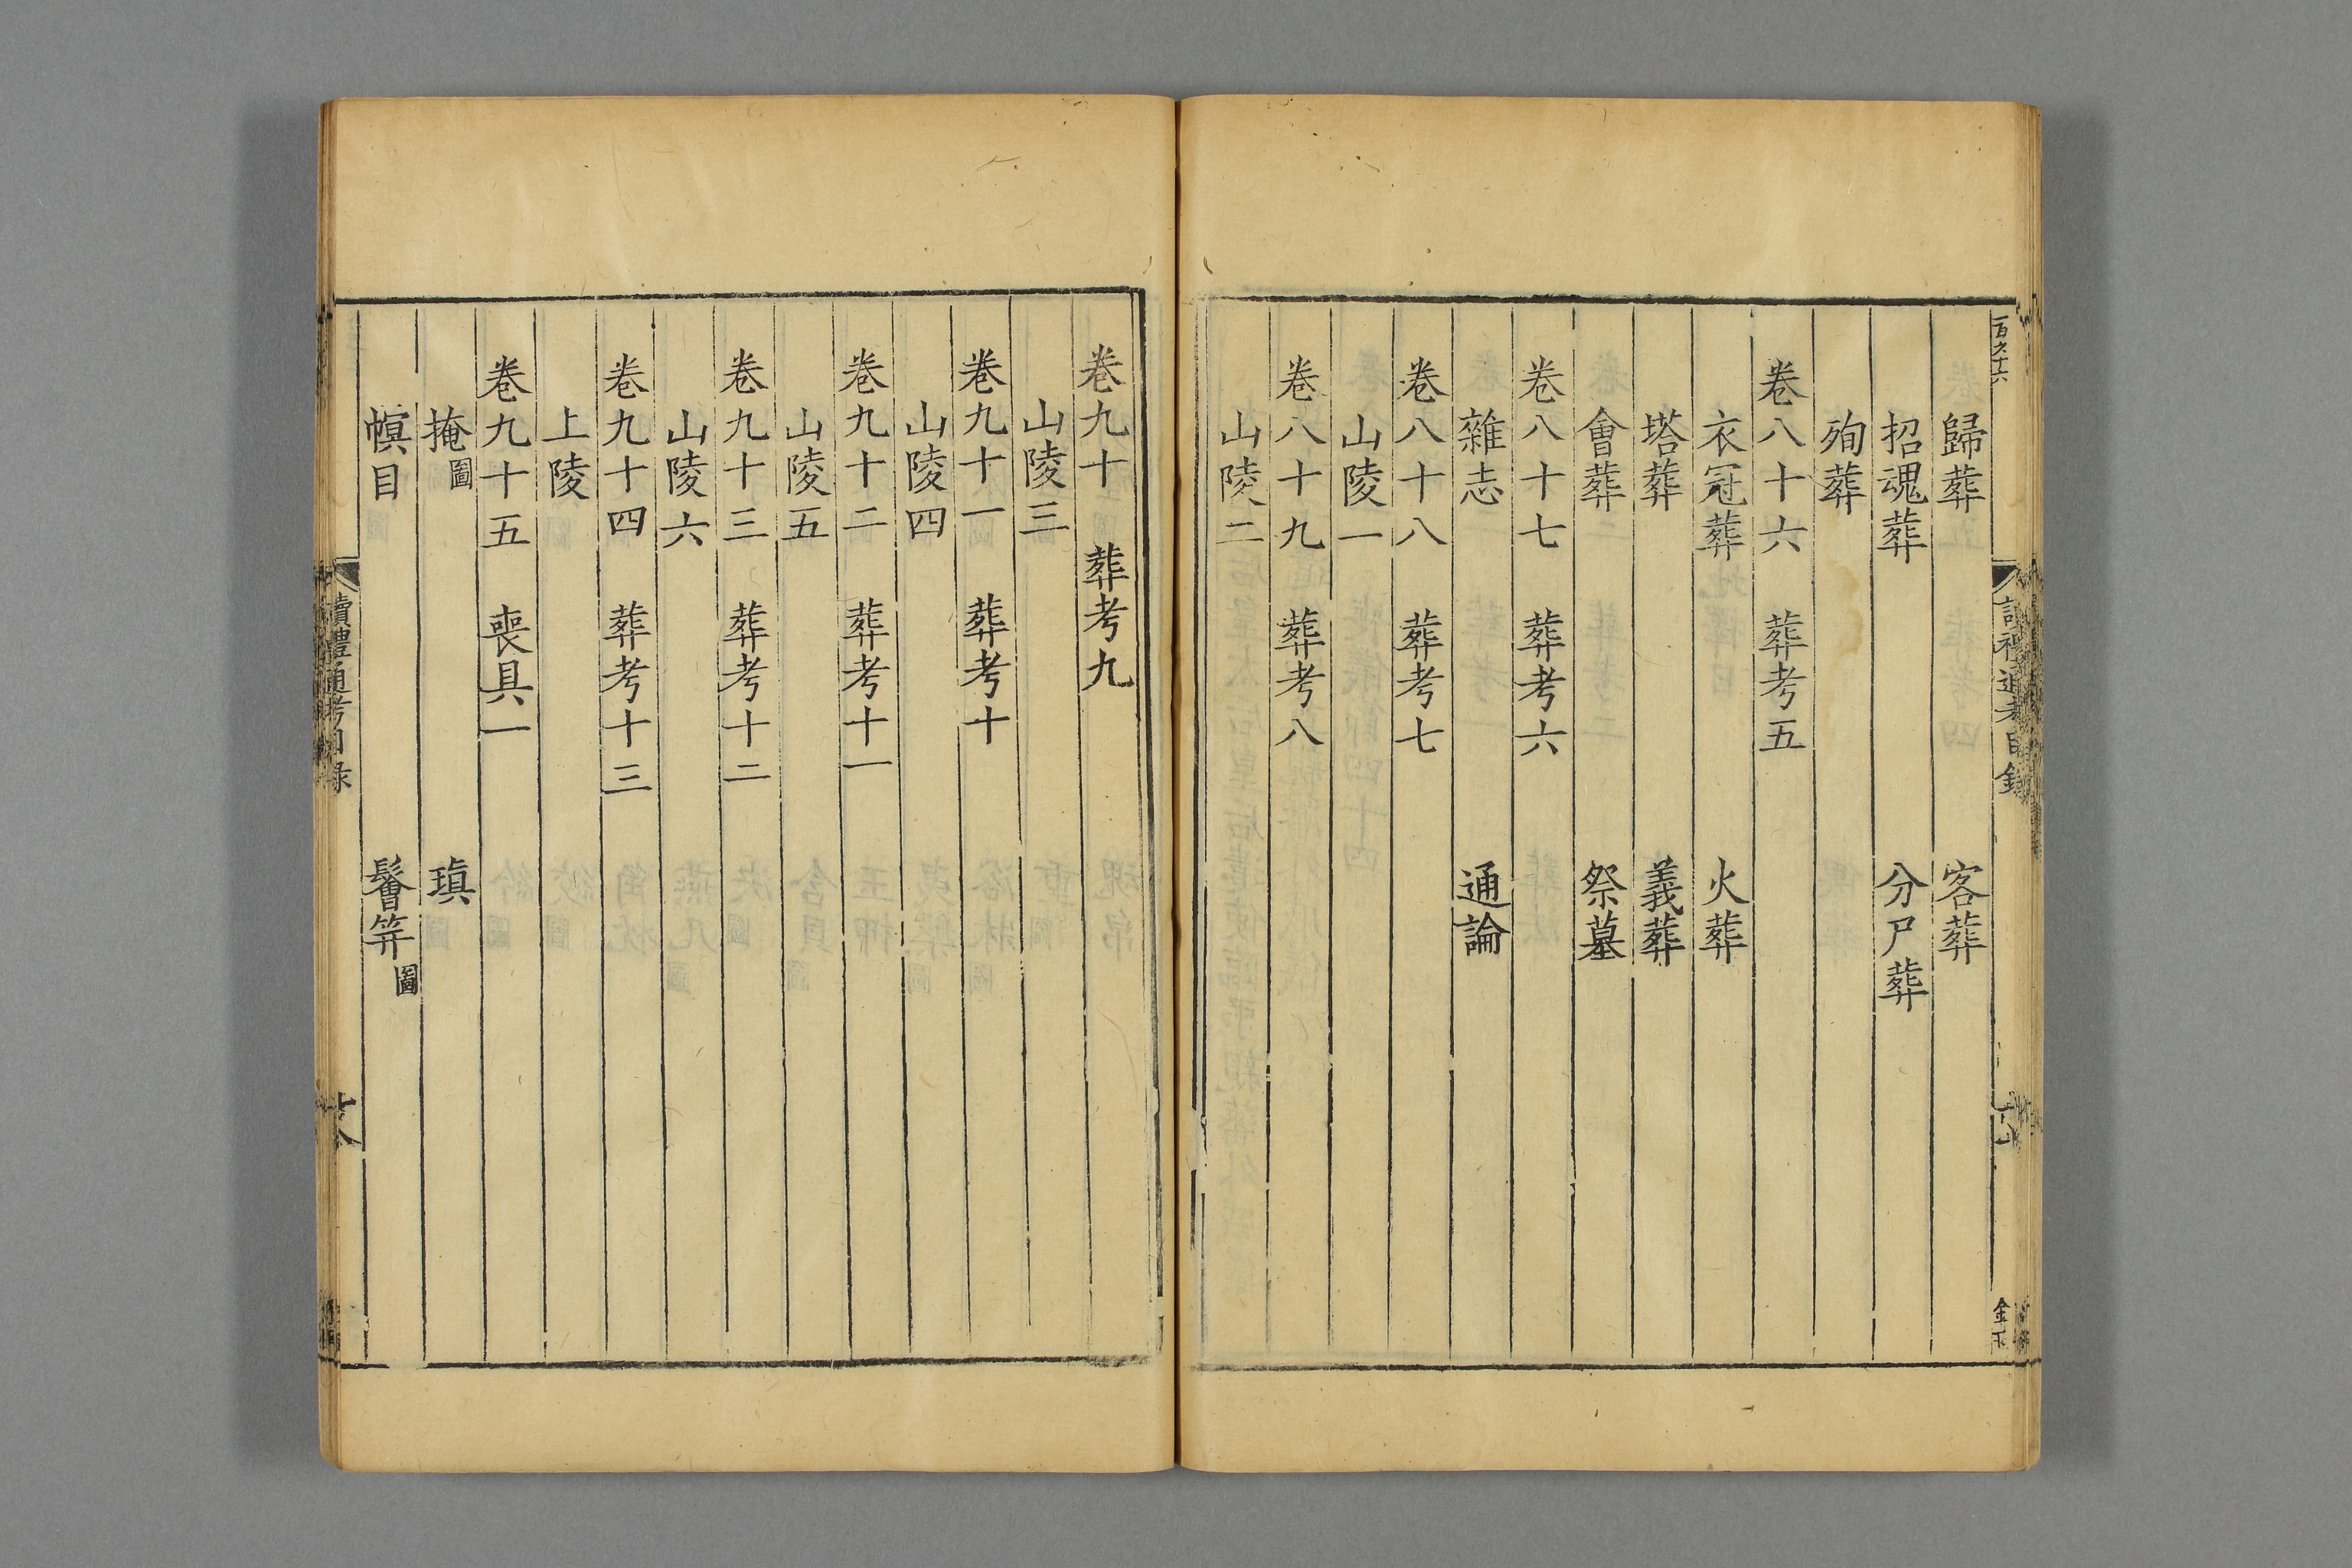 歸葬 客葬
招魂葬 分尸葬
殉葬
卷八十六 葬考五
衣冠葬 火葬
塔葬 義葬
會葬 祭墓
卷八十七 葬考六
雜志 通論
卷八十八 葬考七
山陵一
卷八十九 葬考八
山陵二
卷九十 葬考九
山陵三
卷九十一 葬考十
山陵四
卷九十二 葬考十一
山陵五
卷九十三 葬考十二
山陵六
卷九十四 葬考十三
上陵
卷九十五 喪具一
掩圖 瑱
幎目 鬠筓圖
讀禮通考目錄